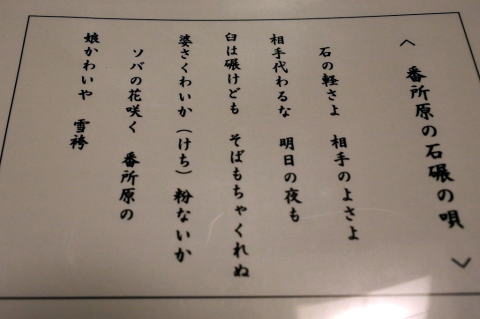 〈 番所原の石碾の唄 〉
石の軽さよ 相手のよさよ
相手代わるな 明日の夜も
臼は碾けども そばもちゃくれぬ
婆さくわいか(けち) 粉ないか
ソバの花咲く 番所原の
娘かわいや 雪袴